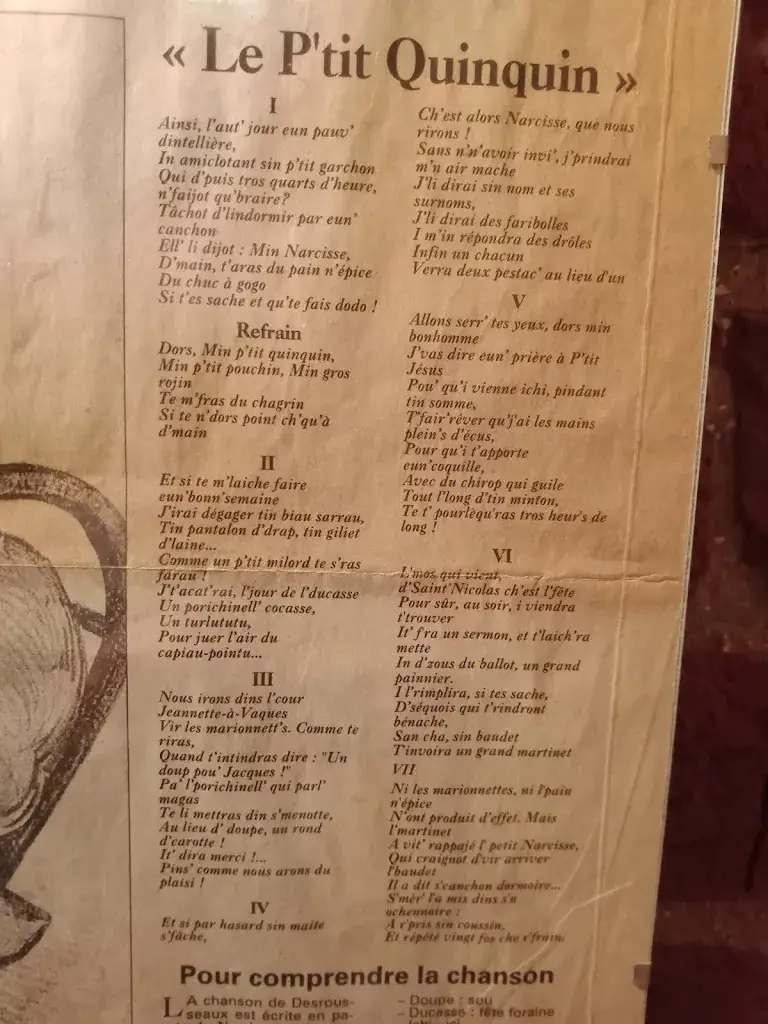 « Le P'tit Quinquin »
I
Ainsi, l'aut' jour eun pauv'
dintellière,
In amiclotant sin p'tit garchon
Qui d'puis tros quarts d'heure,
n'faijot qu'braire?
Tâchot d'lindormir par eun'
canchon
Ell' li dijot : Min Narcisse,
D'main, t'aras du pain n'épice
Du chuc à gogo
Si t'es sache et qu'te fais dodo !
Refrain
Dors, Min p'tit quinquin,
Min p'tit pouchin, Min gros
rojin
Te m'fras du chagrin
Si te n'dors point ch'qu'à
d'main
II
Et si te m'laiche faire
eun'bonn'semaine
J'irai dégager tin biau sarrau,
Tin pantalon d'drap, tin giliet
d'laine...
Comme un p'tit milord te s'ras
farau !
J't'acat'rai, l'jour de l'ducasse
Un porichinell' cocasse,
Un turlututu,
Pour juer l'air du
capiau-pointu...
III
Nous irons dins l'cour
Jeannette-à-Vaques
Vir les marionnett's. Comme te
riras,
Quand t'intindras dire : "Un
doup pou' Jacques !"
Pa' l'porichinell' qui parl'
magas
Te li mettras din s'menotte,
Au lieu d' doupe, un rond
d'carotte !
It' dira merci !...
Pins' comme nous arons du
plaisi !
IV
Et si par hasard sin maite
s'fâche,
Ch'est alors Narcisse, que nous
rirons !
Sans n'n'avoir invi', j'prindrai
m'n air mache
J'li dirai sin nom et ses
surnoms,
J'li dirai des faribolles
I m'in répondra des drôles
Infin un chacun
Verra deux pestac' au lieu d'un
V
Allons serr' tes yeux, dors min
bonhomme
J'vas dire eun' prière à P'tit
Jésus
Pou' qu'i vienne ichi, pindant
tin somme,
T'fair'rêver qu'j'ai les mains
plein's d'écus,
Pour qu'i t'apporte
eun'coquille,
Avec du chirop qui guile
Tout l'long d'tin minton,
Te t' pourlèqu'ras tros heur's de
long !
VI
L'mos qui vient,
d'Saint'Nicolas ch'est l'fête
Pour sûr, au soir, i viendra
t'trouver
It' f'ra un sermon, et t'laich'ra
mette
In d'zous du ballot, un grand
painnier.
I l'rimplira, si tes sache,
D'séquois qui t'rindront
bénache,
San cha, sin baudet
T'invoira un grand martinet
VII
Ni les marionnettes, ni l'pain
n'épice
N'ont produit d'effet. Mais
l'martinet
A vit' rappajé l' petit Narcisse,
Qui craignot d'vir arriver
l'baudet
Il a dit s'canchon dormoire...
S'mèr' l'a mis dins s'n
ochennoire :
A r'pris sin coussin,
Et répété vingt fos che r'frain.
Pour comprendre la chanson
LA chanson de Desrous-
seaux est écrite en pa-
– Doupe : sou
– Ducasse : fête foraine